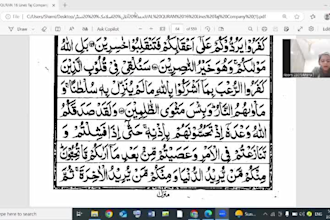 كَفَرُوا يَرُدُّوكُمْ عَلَىٰ أَعْقَابِكُمْ فَتَنْقَلِبُوا خٰسِرِينَ بَلِ اللهُ
مَوْلٰىكُمْ وَهُوَ خَيْرُ النّٰصِرِينَ سَنُلْقِي فِي قُلُوبِ الَّذِينَ
كَفَرُوا الرُّعْبَ بِمَا أَشْرَكُوا بِاللهِ مَا لَمْ يُنَزِّلْ بِهِ سُلْطٰنًا وَ
مَأْوٰىهُمُ النَّارُ وَبِئْسَ مَثْوَى الظّٰلِمِينَ وَلَقَدْ صَدَقَكُمُ
اللهُ وَعْدَهُ إِذْ تَحُسُّونَهُمْ بِإِذْنِهِ حَتَّىٰ إِذَا فَشِلْتُمْ وَ
تَنَازَعْتُمْ فِي الْأَمْرِ وَعَصَيْتُمْ مِنْ بَعْدِ مَا أَرٰىكُمْ مَا تُحِبُّونَ
مِنْكُمْ مَنْ يُرِيدُ الدُّنْيَا وَمِنْكُمْ مَنْ يُرِيدُ الْآخِرَةَ ثُمَّ
منزل
here to search